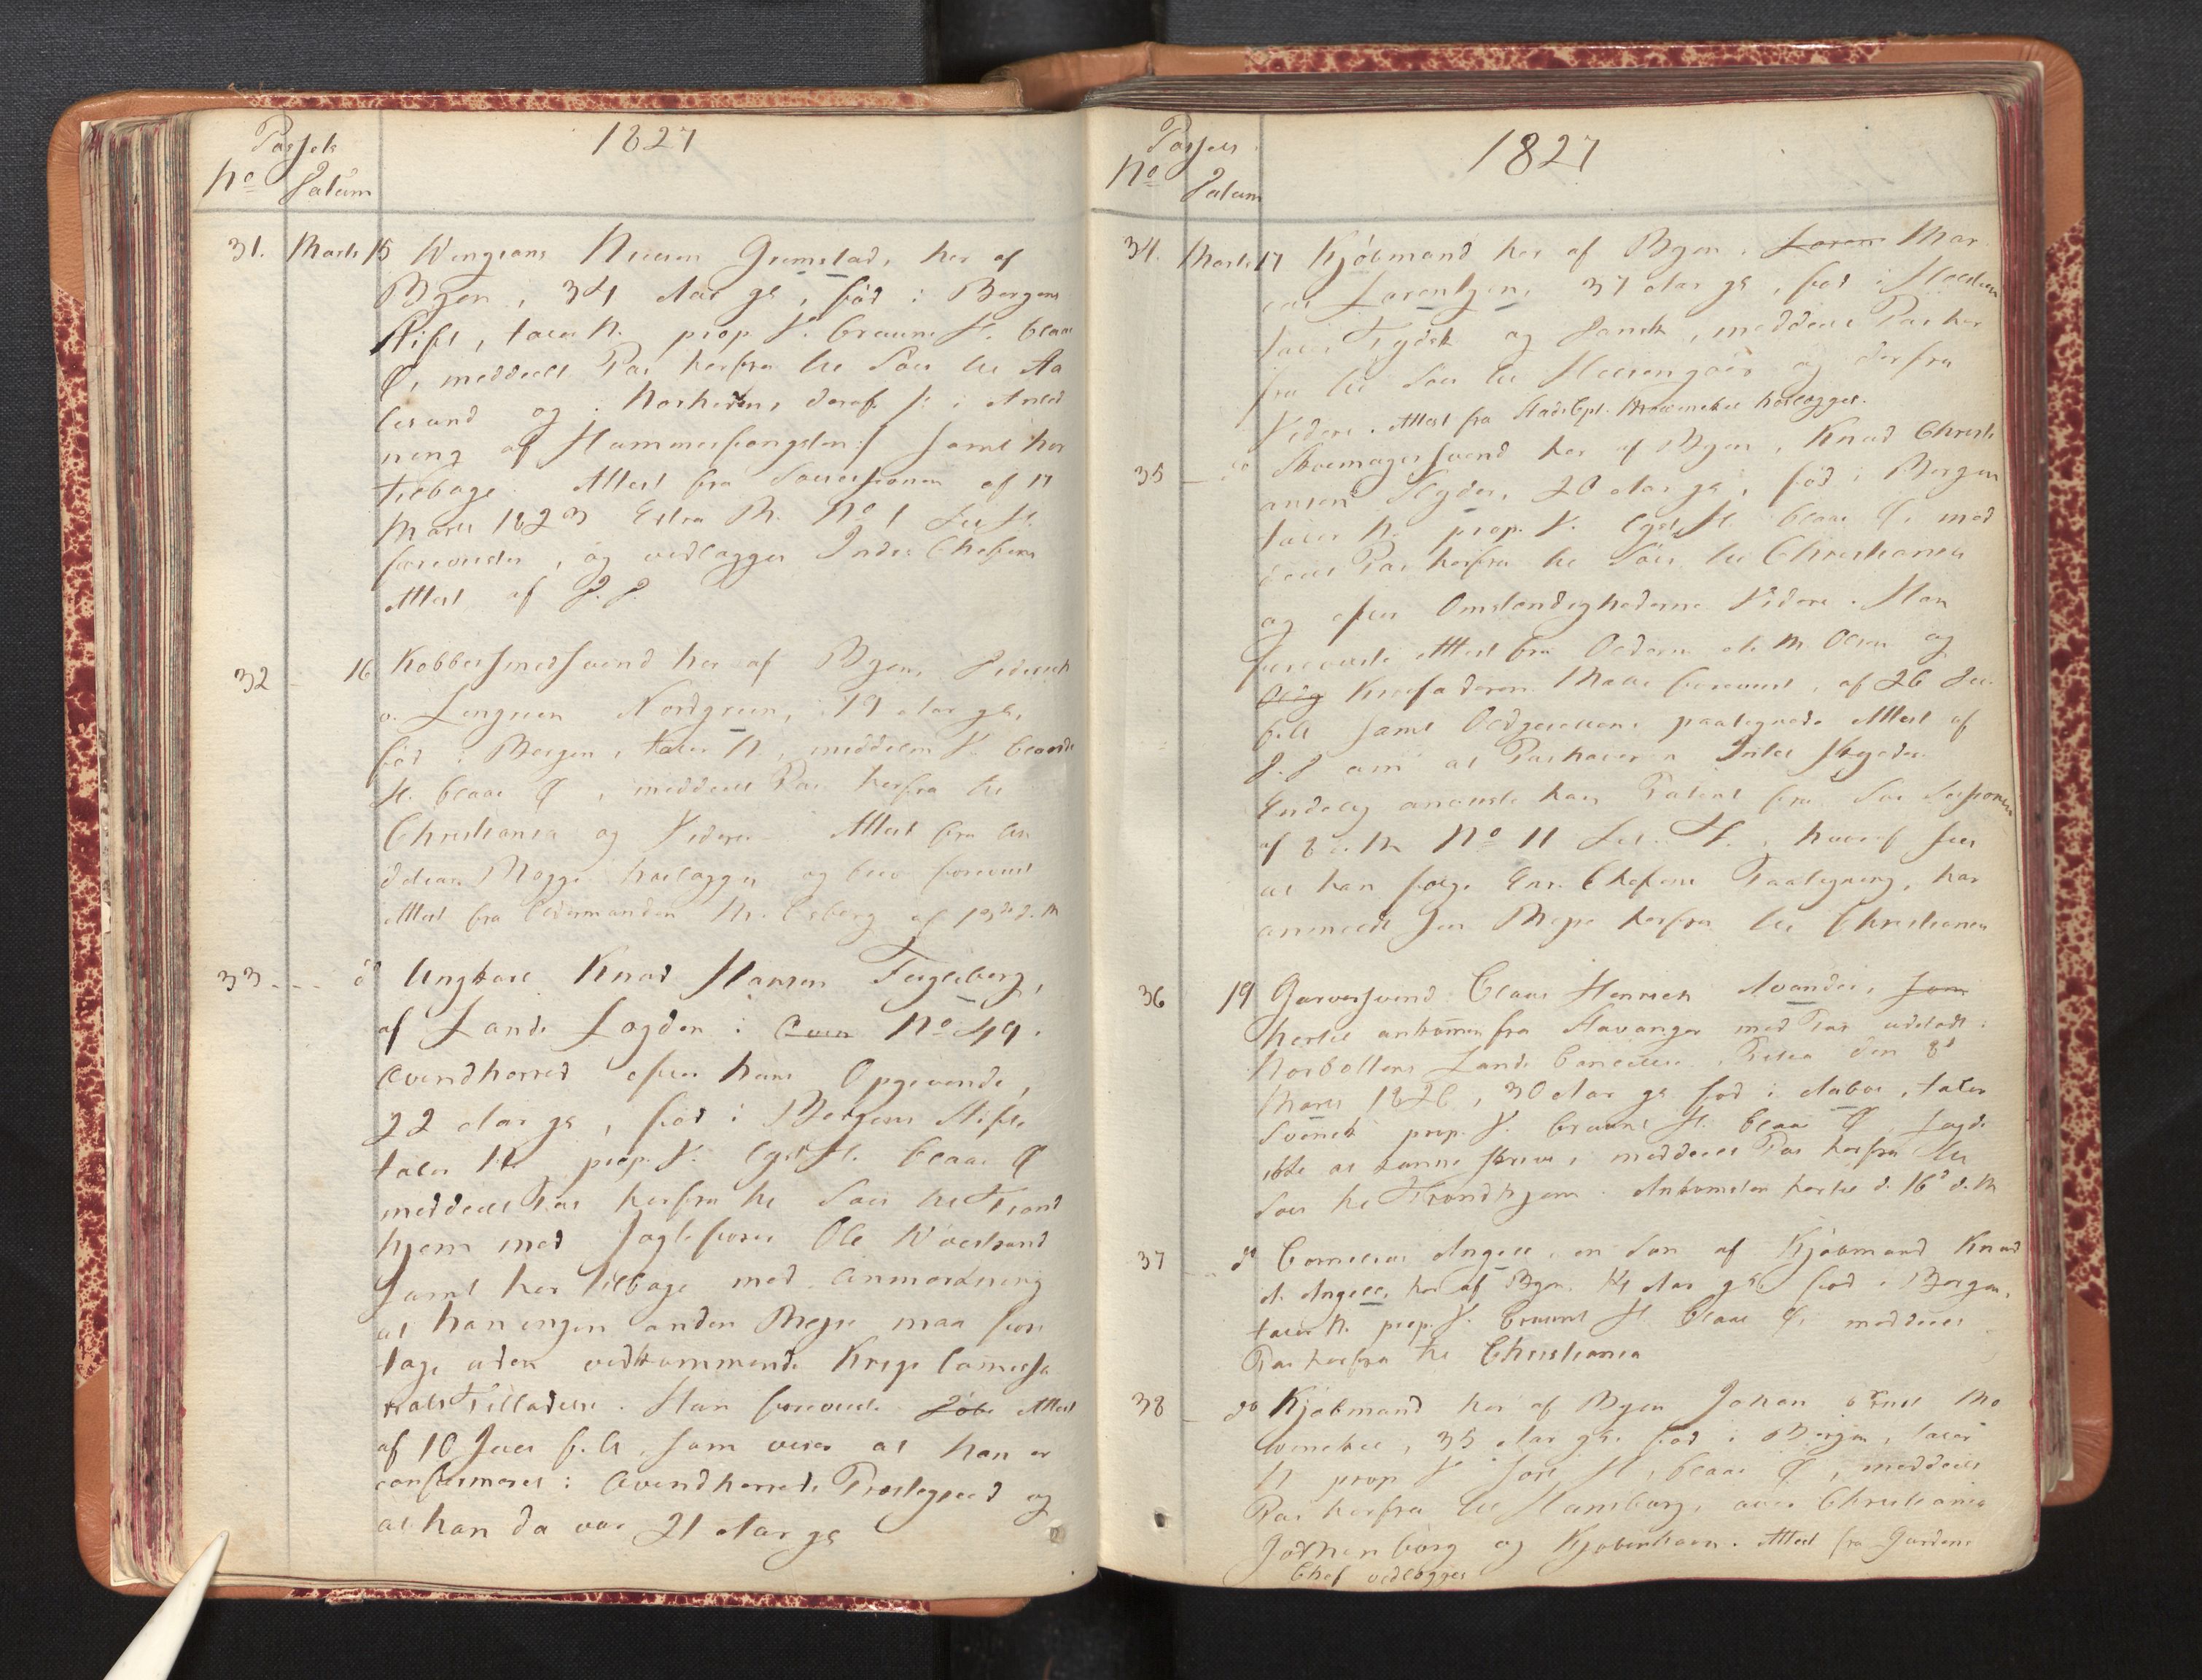 Passets
No Datum
1827
31. Marts 15 Nielsen Grimstad, her af
Byen, 34 Aar gl, fød i Bergens
Stift, taler N. prop. V. bruunt H. blaae
Ø, meddeelt Pas herfra til Søes til Aa
lesund og Norherøen, deraf /: i Anled
ning af Hummerfangsten :/ samt her
tilbage. Attest fra Sessionen af 17
Marts 1823 Extra R. No 1 Lit. H.
foreviister, og vedlægger Indr. Chefens
Attest af D. D.
32 - 16 Kobbersmedsvend her af Byen, Diderich
v. Lengreen Nordgreen, 19 Aar gl,
fød i Bergen, taler N., middelm V. blondt
H. blaae Ø, meddeelt Pas herfra til
Christiania og Videre - Attest fra
Mogge hoslægges og blev foreviist
Attest fra Oldermanden M. Esberg af 13de d. M
33 - - - do Ungkarl Knud Hansen Teigleberg,
af Lands Lægden i Qven No 49.
Qvindherred efter hans Opgivende,
22 Aar gl, fød i Bergens Stift
taler N. prop. V. lyst H. blaae Ø
meddeelt Pas herfra til Søes til Trond
hjem med Jagtefører Ole
samt her tilbage med Anmærkning
at han ingen anden Rejse maa fore
tage uden vedkommende Krigs Comissa
riats Tilladelse. Han foreviiste Døbe Attest
af 10 Juli f. A. som viser at han er
confirmeret i Qvindherreds Præstegield og
at han da var 21 Aar gl
Passets
No Datum
1827
34. Marts 17 Kjøbmand her af Byen, Lorens Mar
cus Lorentzen, 37 Aar gl, fød i
taler Tydsk og Dansk, meddeelt Pas her
fra til Søes til Helsingøer og derfra
Videre. Attest fra Stads Cpt. Mowinckel hoslægges.
35 - do Skoemagersvend her af Byen, Knud Christi
ansen Slyder, 20 Aar gl, fød i Bergen
taler N. prop. V. lyst H. blaae Ø, med
deelt Pas herfra til Søes til Christiania
og efter Omstændighederne Videre. Han
foreviiste Attest fra Olderm. M Olsen og
Oldg Krosfaderen Maae foreviist, af 26 Jul.
f. A. samt Oldgesellens paategnede Attest af
D. D om at Pashaver n Intet skylder
Endelig anviiste han Patent fra Søe Sessionen
af 8 d. M No 11 Lit. H., hvoraf sees
at han følge Enr. Chefens Paategning, har
anmeldt sin Rejse herfra til Christiania
36 19 Garversvend Claus Henrich Avander, Jom
hertil ankommen fra Stavanger med Pas udstædt i
Norbottens Lands Cancellie Pitea den 8d
Marts 1826, 30 Aar gl fød i Aabo, taler
Svensk prop. V. bruunt H. blaae Ø, sagde
ikke at kunne skrive, meddeelt Pas herfra til
Søes til Trondhjem. Ankomsten hertil d. 16d d. M
37 - - do Cornelius Angell, en Søn af Kjøbmand Knud
A. Angell, her af Byen, 14 Aar gl fød i Bergen,
taler N. prop. V. bruunt H. blaae Ø, meddeelt
Pas herfra til Christiania
38 - do Kjøbmand her af Byen Johan Ernst Mo
winckel, 35 Aar gl, fød i Bergen, taler
N prop V sort H, blaae Ø, meddeelt
Pas herfra til Hamburg, over Christiania
Gothenborg og Kjøbenhavn. Attest fra Gardens
Chef vedlægges